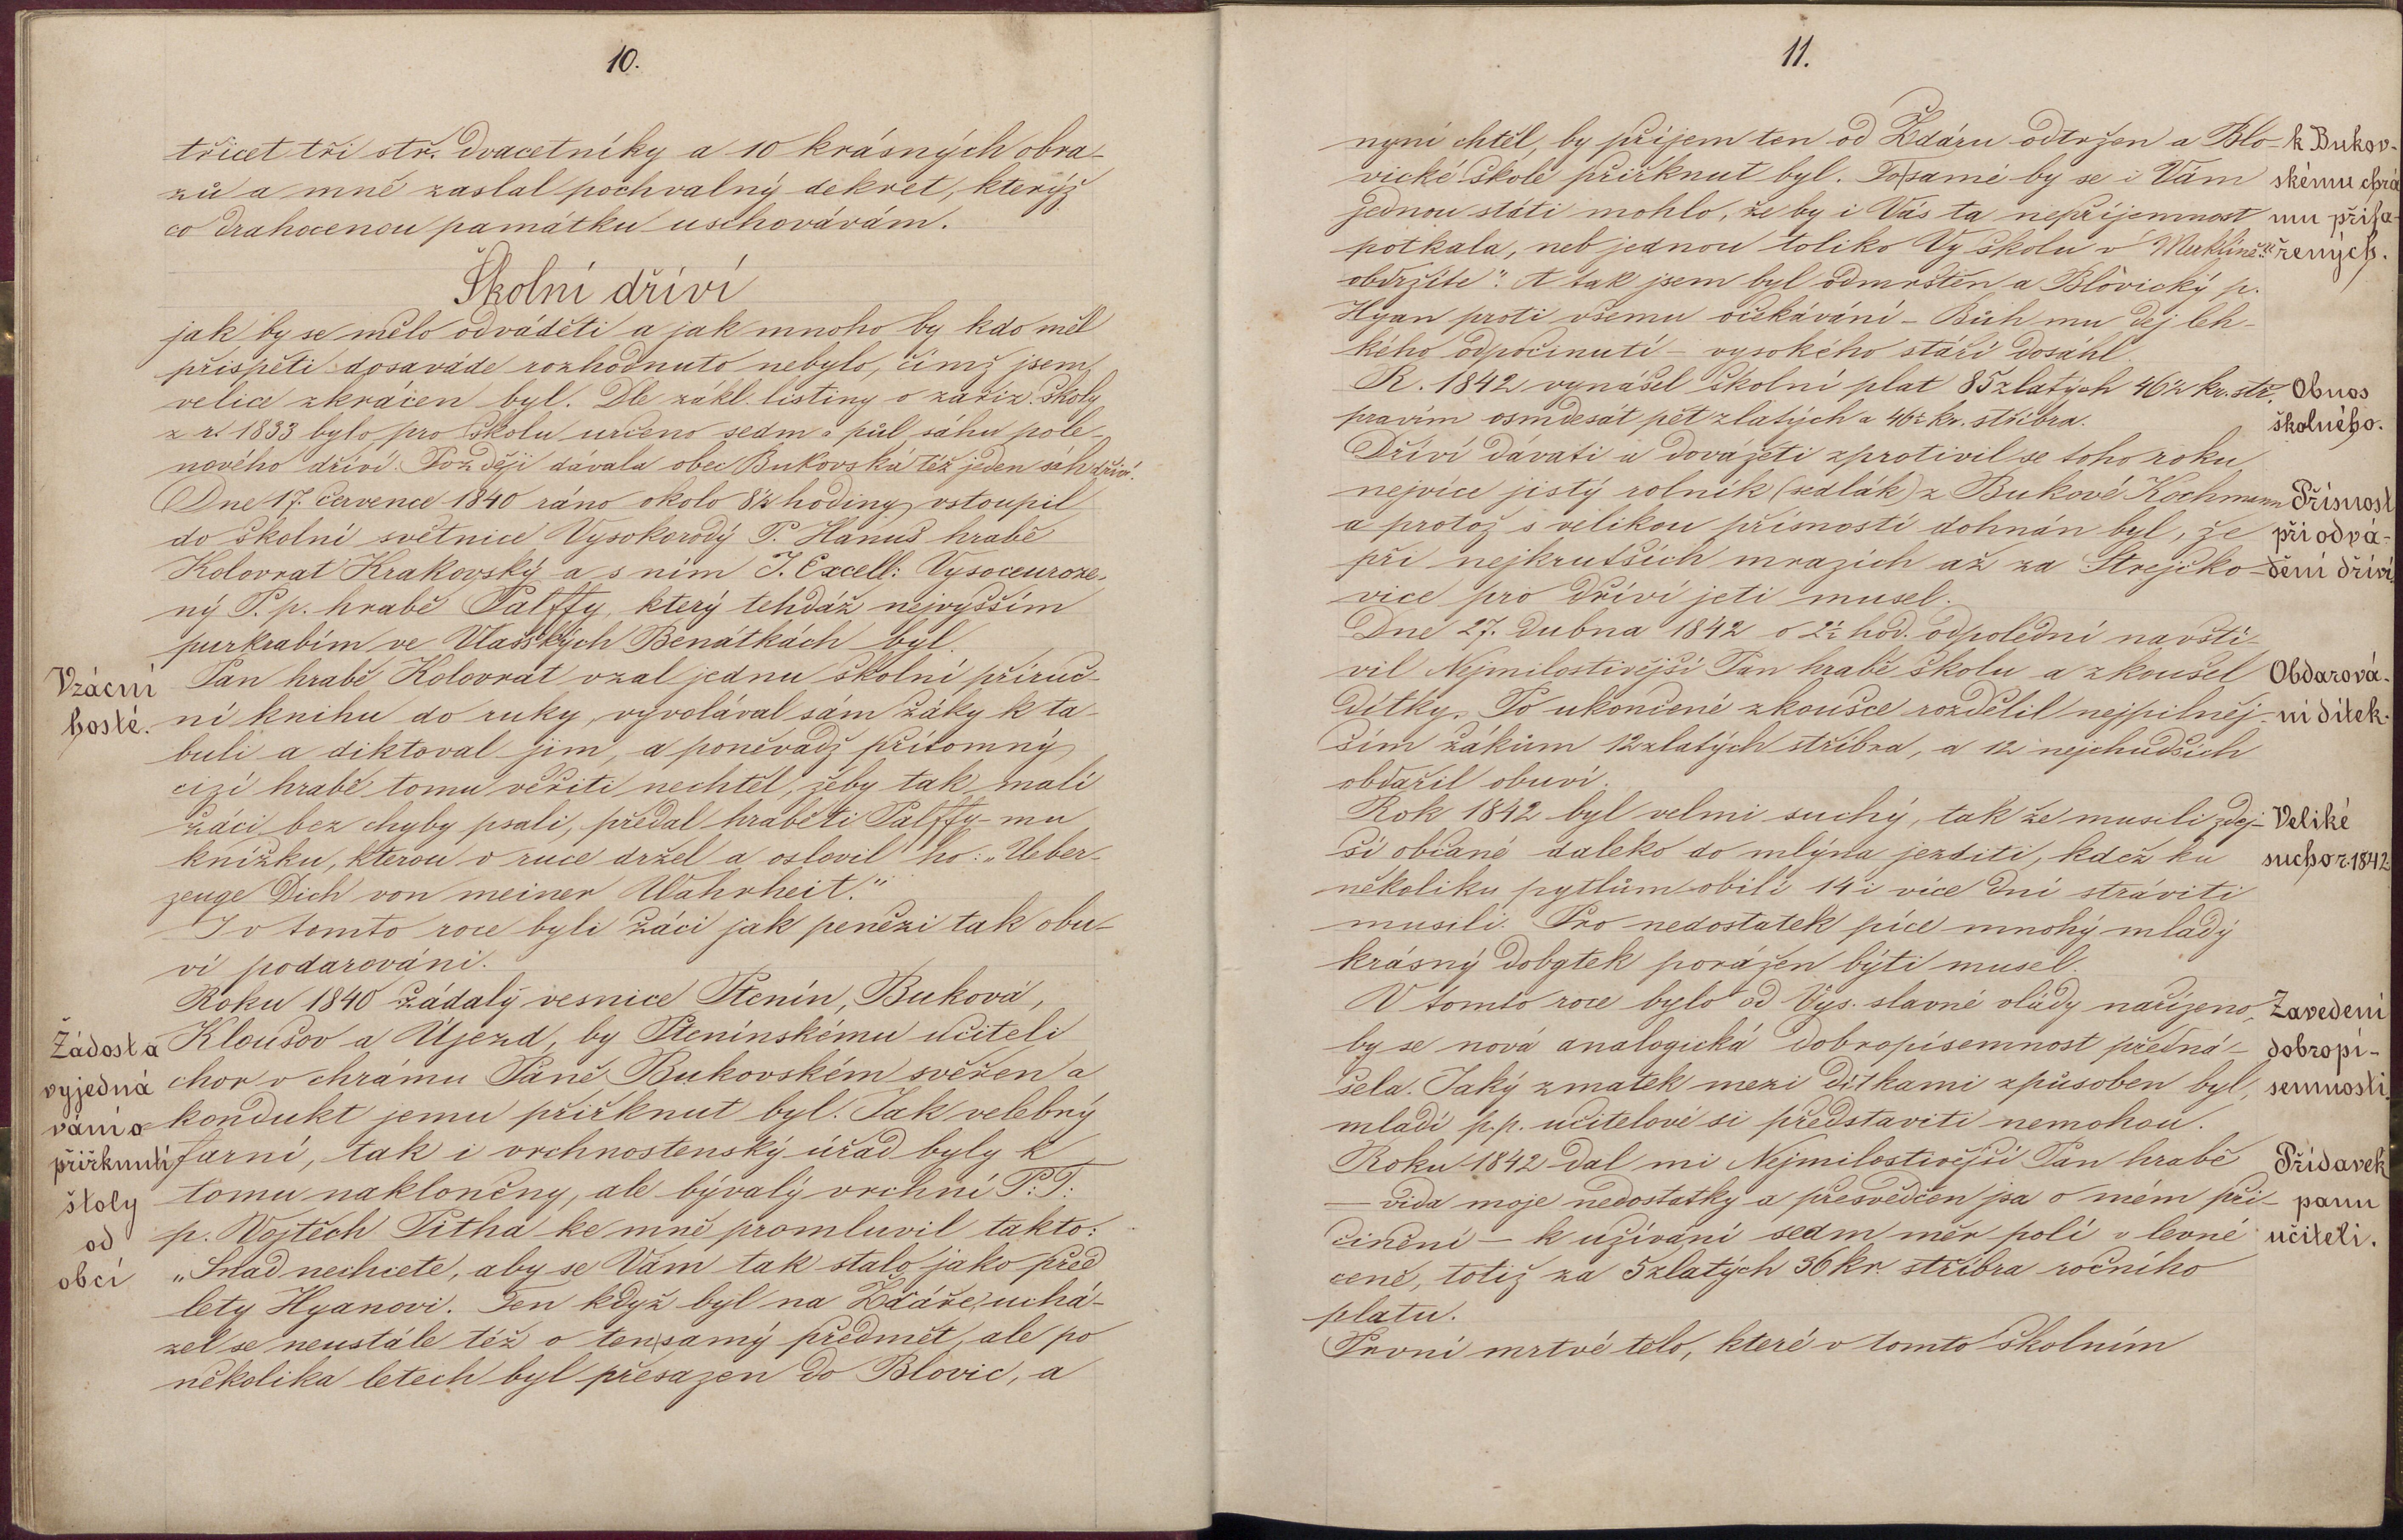 10.
třicet tři stř. dvacetníky a 10 krásných obra-
zů a mně zaslal pochvalný dekret, kterýž
co drahocenou památku uschovávám.
Školní dříví
jak by se mělo odváděti a jak mnoho by kdo měl
přispěti dosaváde rozhodnuto nebylo, čímž jsem
velice zkrácen byl. Dle zákl. listiny o zaříz. školy
z r. 1833 bylo pro školu určeno sedm a půl sáhu pole-
nového dříví. Později dávala obec Bukovská též jeden sáh dříví.
Dne 17. července 1840 ráno okolo 8½ hodiny vstoupil
do školní světnice Vysokorodý P. Hanuš hrabě
Kolovrat Krakovský a s ním J. Excell: Vysoceuroze-
ný P. p. hrabě Palffy, který tehdáž nejvyšším
purkrabím ve Vlasských Benátkách byl.
Vzácní
hosté.
Pan hrabě Kolovrat vzal jednu školní příruč-
ní knihu do ruky, vyvolával sám žáky k ta-
buli a diktoval jim, a poněvadž přítomný
cizí hrabě tomu věřiti nechtěl, žeby tak malí
žáci bez chyby psali, předal hraběti Palffy-mu
knížku, kterou v ruce držel a oslovil ho: „Ueber-
zeuge Dich von meiner Wahrheit."
I v tomto roce byli žáci jak penězi tak obu-
ví podarováni.
Roku 1840 žádaly vesnice Ptenín, Buková,
Kloušov a Újezd, by Ptenínskému učiteli
chor v chrámu Páně Bukovském svěřen a
kondukt jemu přiřknut byl. Jak velebný
farní, tak i vrchnostenský úřad byly k
tomu nakloněny, ale bývalý vrchní P: T:
p. Vojtěch Pitha ke mně promluvil takto:
„Snad nechcete, aby se Vám tak stalo jako před
lety Hyanovi. Ten když byl na Ždáře, uchá-
zel se neustále též o tensamý předmět, ale po
několika letech byl přesazen do Blovic, a
Žádost a
vyjedná
vání o
přiřknutí
štoly
od
obcí
11.
nyní chtěl, by příjem ten od Ždáru odtržen a Blo-
vické škole přiřknut byl. Tosamé by se i Vám
jednou státi mohlo, že by i Vás ta nepříjemnost
potkala, neb jednou toliko Vy školu v Merklíně
obdržíte". A tak jsem byl odmrštěn a Blovický p.
Hyan proti všemu očekávání – Bůh mu dej leh-
kého odpočinutí – vysokého stáří dosáhl.
k Bukov-
skému chrá
mu přifa-
řených.
R. 1842 vynášel školní plat 85 zlatých 46½ kr. stř.
pravím osmdesát pět zlatých a 46½ kr. stříbra.
Obnos
školného.
Dříví dávati a dovážeti zprotivil se toho roku
nejvíce jistý rolník (sedlák) z Bukové Kochmann
a protož s velikou přísností dohnán byl, že
při nejkrutších mrazích až za Strejčko-
vice pro dříví jeti musel.
Přísnost
při odvá-
dění dříví.
Dne 27. dubna 1842 o 2½ hod. odpolední navští-
vil Nejmilostivější Pan hrabě školu a zkoušel
dítky. Po ukončené zkoušce rozdělil nejpilněj-
ším žákům 12 zlatých stříbra, a 12 nejchudších
obdařil obuví.
Obdarová-
ní dítek.
Rok 1842 byl velmi suchý, tak že musili zdej-
ší občané daleko do mlýna jezditi, kdež ku
několiku pytlům obilí 14 i více dní stráviti
musili. Pro nedostatek píce mnohý mladý
krásný dobytek poražen býti musel.
Veliké
sucho r. 1842.
V tomto roce bylo od Vys. slavné vlády nařízeno,
by se nová analogická dobropísemnost předná-
šela. Jaký zmatek mezi dítkami způsoben byl,
mladí p. p. učitelové si představiti nemohou.
Zavedení
dobropí-
semnosti.
Roku 1842 dal mi Nejmilostivější Pan hrabě
— vida moje nedostatky a přesvědčen jsa o mém při-
činění — k užívání sedm měr polí v levné
ceně, totiž za 5 zlatých 36 kr. stříbra ročního
platu.
Přídavek
panu
učiteli.
První mrtvé tělo, které v tomto školním